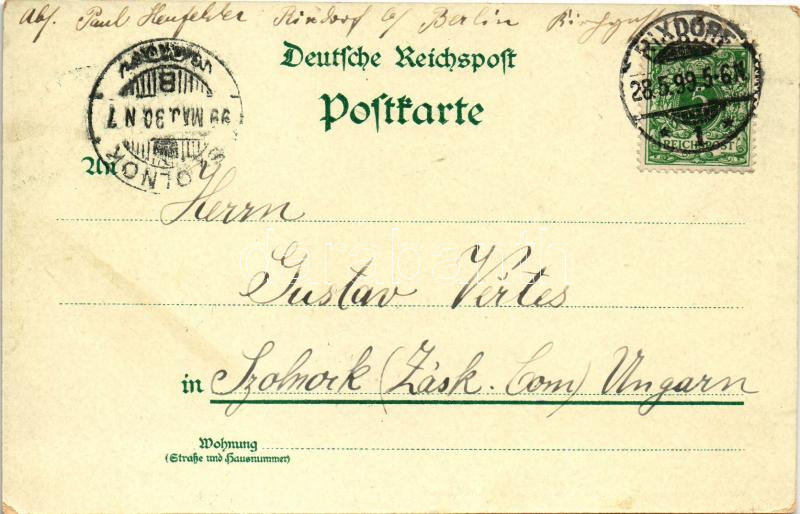 Abs. Paul Heufelder Rixdorf b/ Berlin
Deutsche Reichspost
Postkarte
RIXDORF
28.5.99.5-6N
* 1 *
5
REICHSPOST
SZOLNOK
99 MAJ. 30 N 7
B
An
Herrn
Gustav Vértes
in Szolnock (Zásk. Com) Ungarn
Wohnung
(Straße und Hausnummer)
darabanth